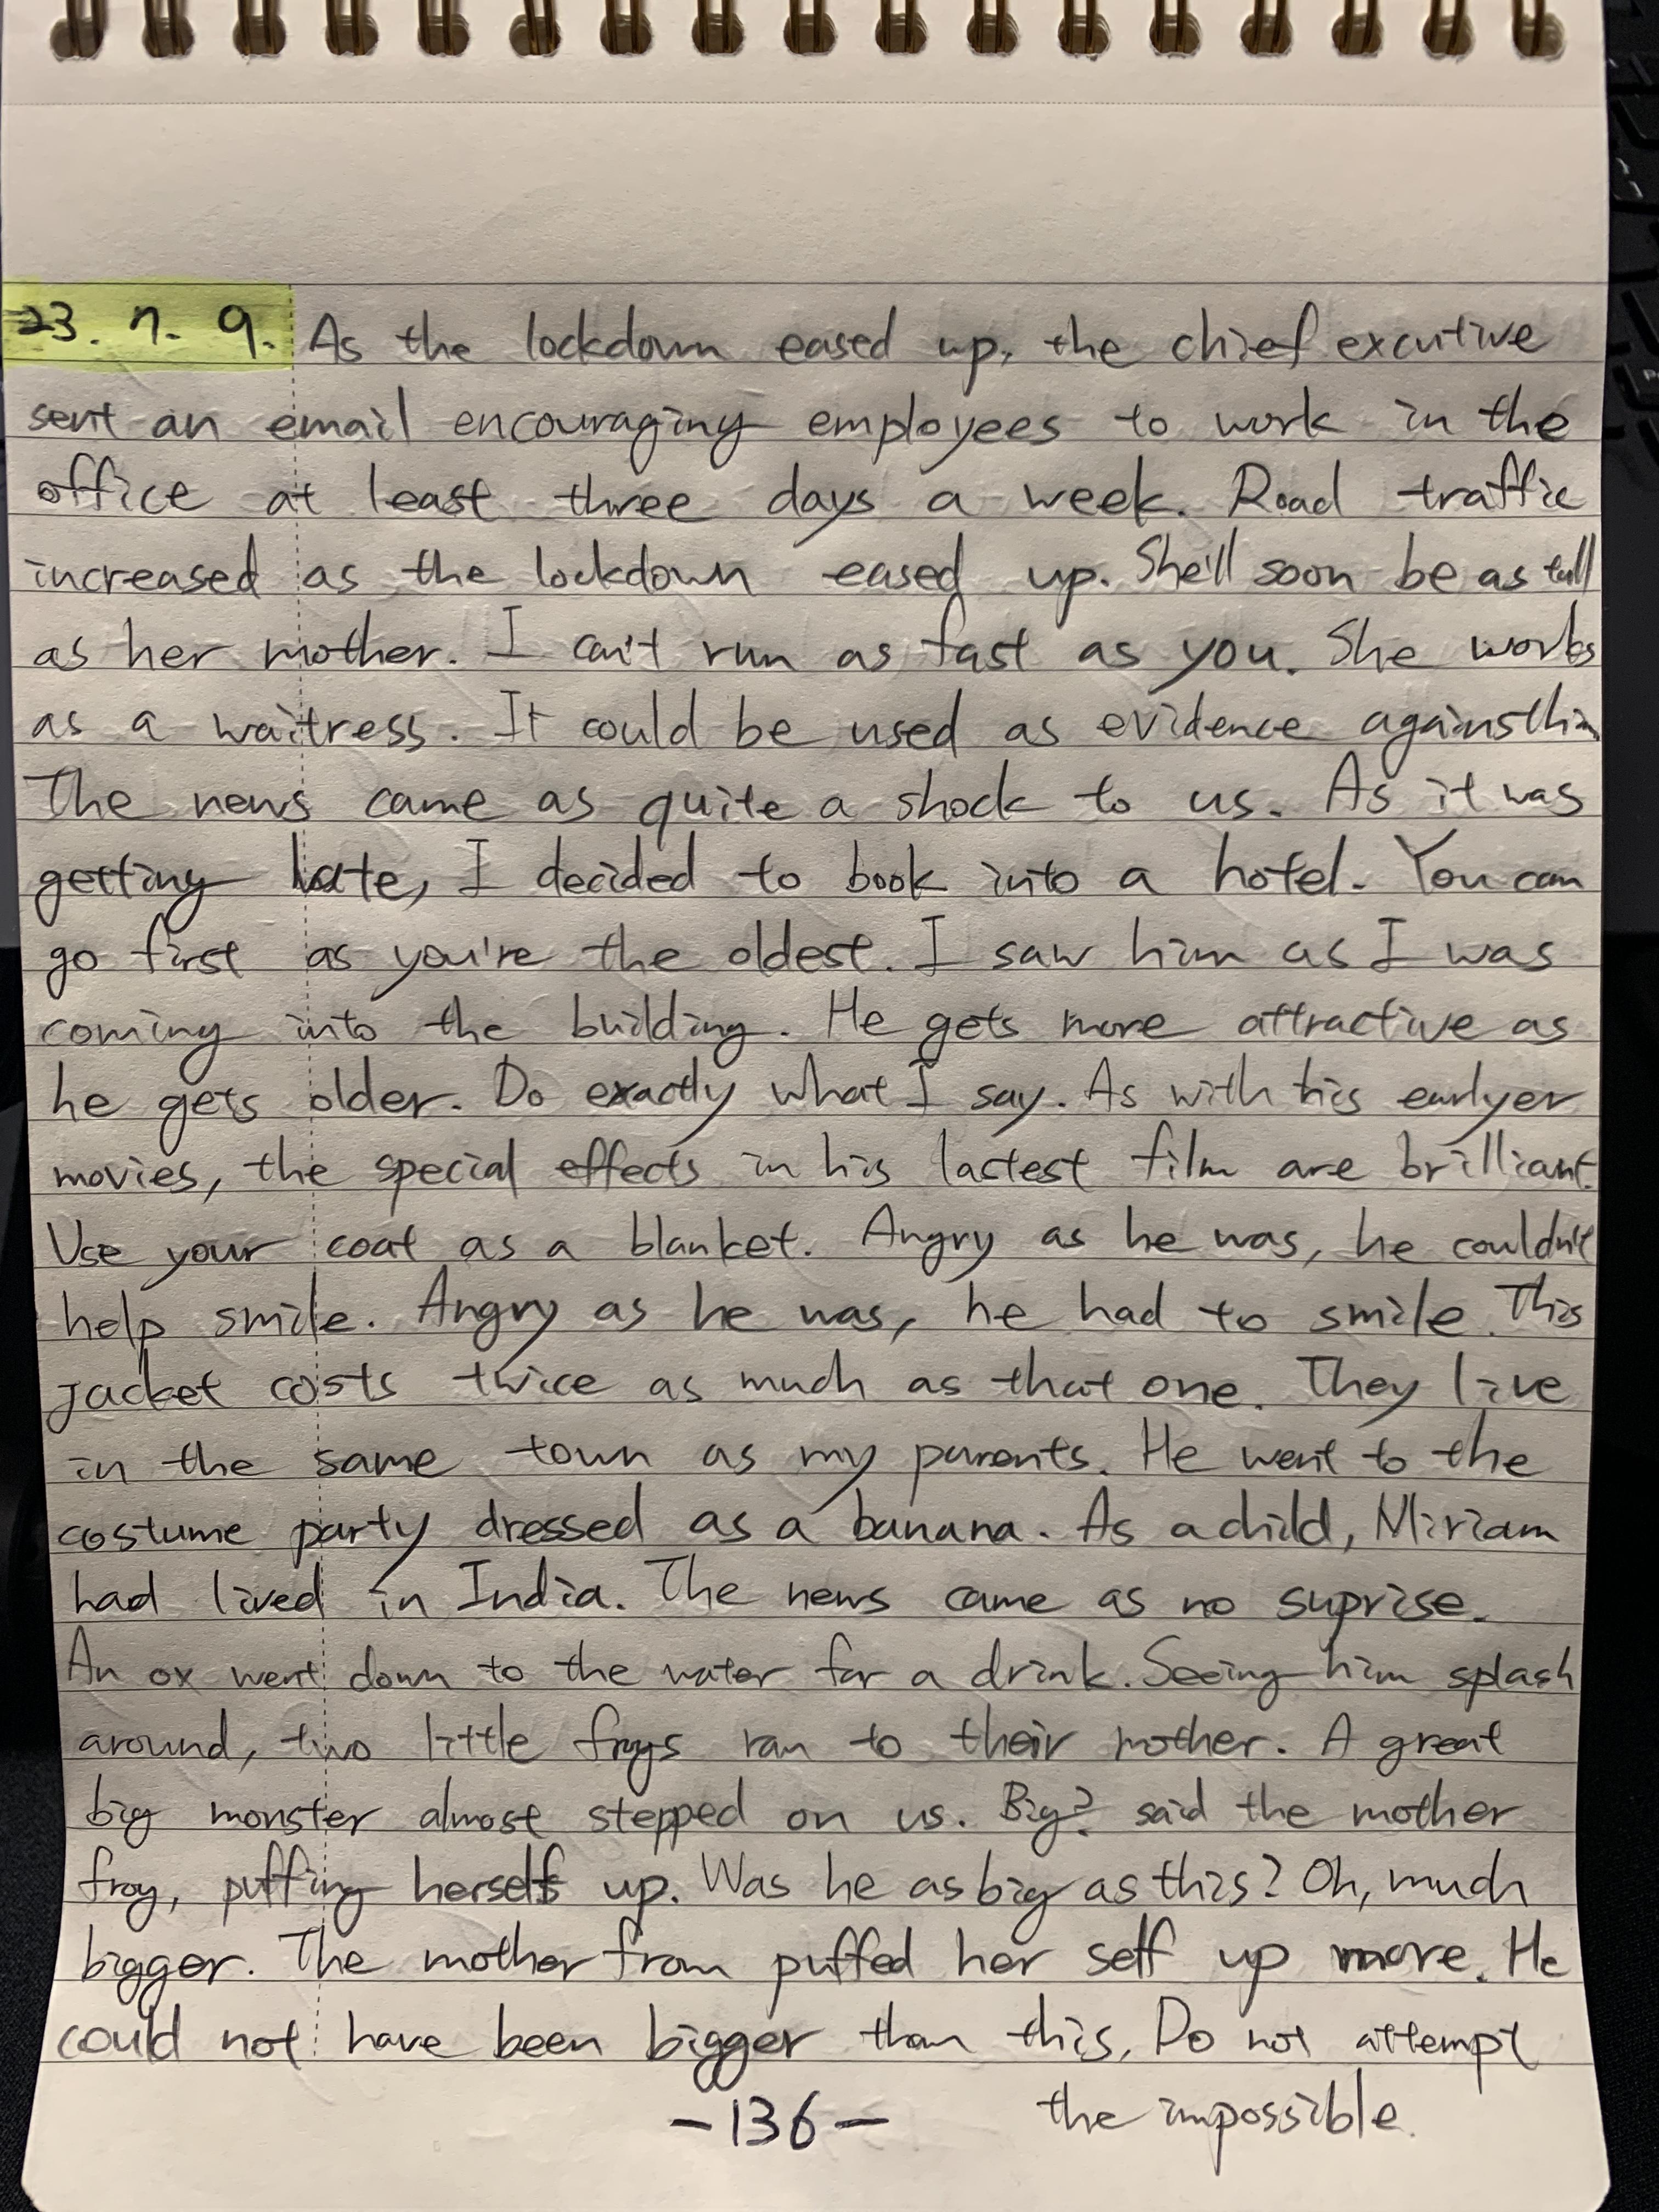 23. 7. 9. As the lockdown eased up, the chief excutive
sent an email encouraging employees to work in the
office at least three days a week. Road traffic
increased as the lockdown eased up. She'll soon be as tall
as her mother. I can't run as fast as you. She works
as a waitress. It could be used as evidence against him
The news came as quite a shock to us. As it was
getting late, I decided to book into a hotel. You can
go first as you're the oldest. I saw him as I was
coming into the building. He gets more attractive as
he gets older. Do exactly what I say. As with his earlyer
movies, the special effects in his lastest film are brilliant.
Use your coat as a blanket. Angry as he was, he couldn't
help smile. Angry as he was, he had to smile. This
jacket costs twice as much as that one. They live
in the same town as my parents. He went to the
costume party dressed as a banana. As a child, Miriam
had lived in India. The news came as no suprise.
An ox went down to the water for a drink. Seeing him splash
around, two little frogs ran to their mother. A great
big monster almost stepped on us. Big? said the mother
frog, puffing herself up. Was he as big as this? Oh, much
bigger. The mother from puffed her self up more. He
could not have been bigger than this. Do not attempt
the impossible.
-136-